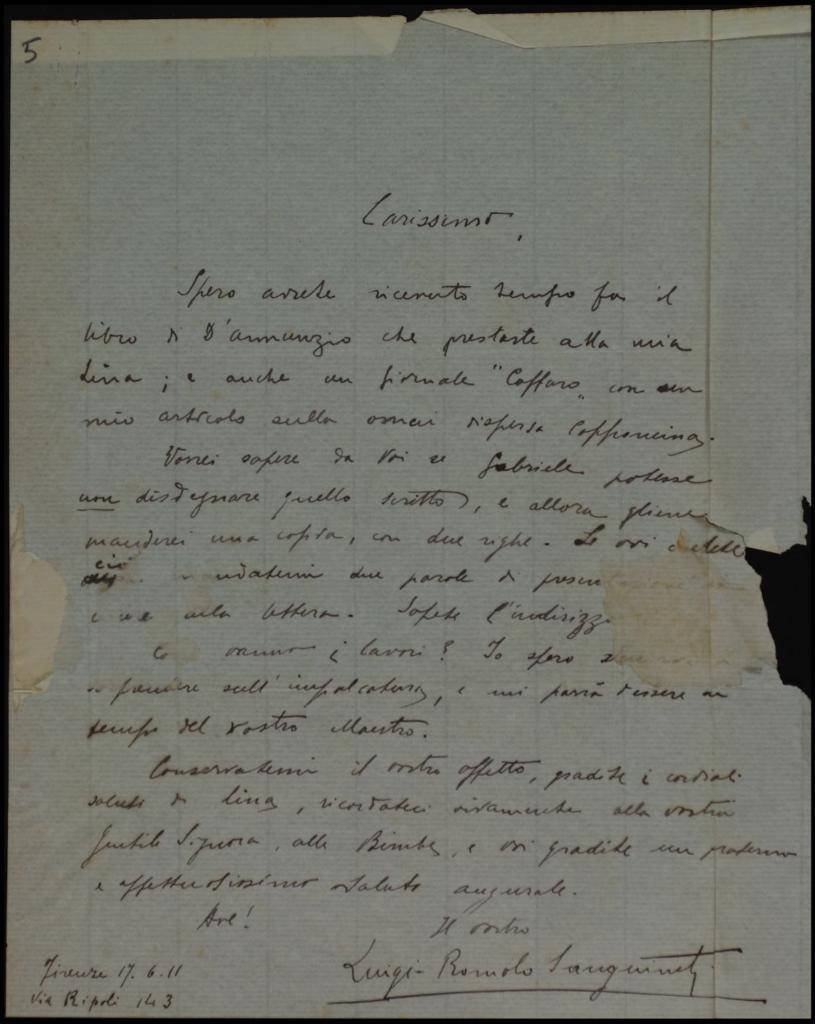 5
Carissimo,
Spero avrete ricevuto tempo fa il
libro di D'annunzio che prestaste alla mia
Lina; e anche un giornale "Caffaro" con un
mio articolo sulla ormai dispersa Capponcina.
Vorrei sapere da Voi se Gabriele potesse
non disdegnare quello scritto, e allora gliene
manderei una copia, con due righe. Se voi
ciò due parole di
alla lettera. Sapete l'indirizzo
vanno i lavori? Io spero
sull'impalcatura, e mi parrà d'essere ai
tempi del vostro Maestro.
Conservatemi il vostro affetto, gradite i cordiali
saluti di Lina, ricordateci vivamente alla vostra
Gentile Signora, alle Bimbe, e voi gradite un fraterno
e affettuosissimo saluto augurale.
Ave!
Il vostro
Luigi Romolo Sanguineti
Firenze 17.6.11
Via Ripoli 143